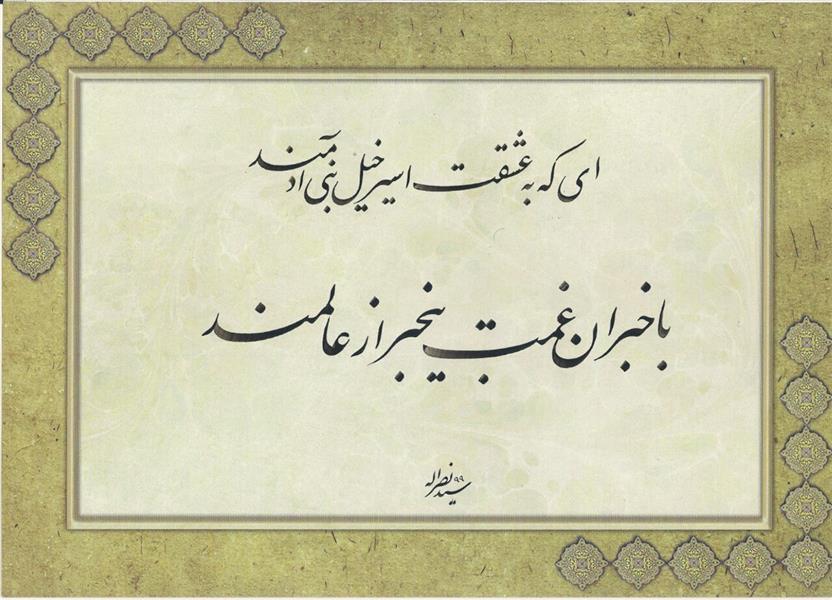 ای که به عشقت اسیر خیل بنی آدمند
با خبران غمت بیخبر از عالمند
سید نصراله ۹۹